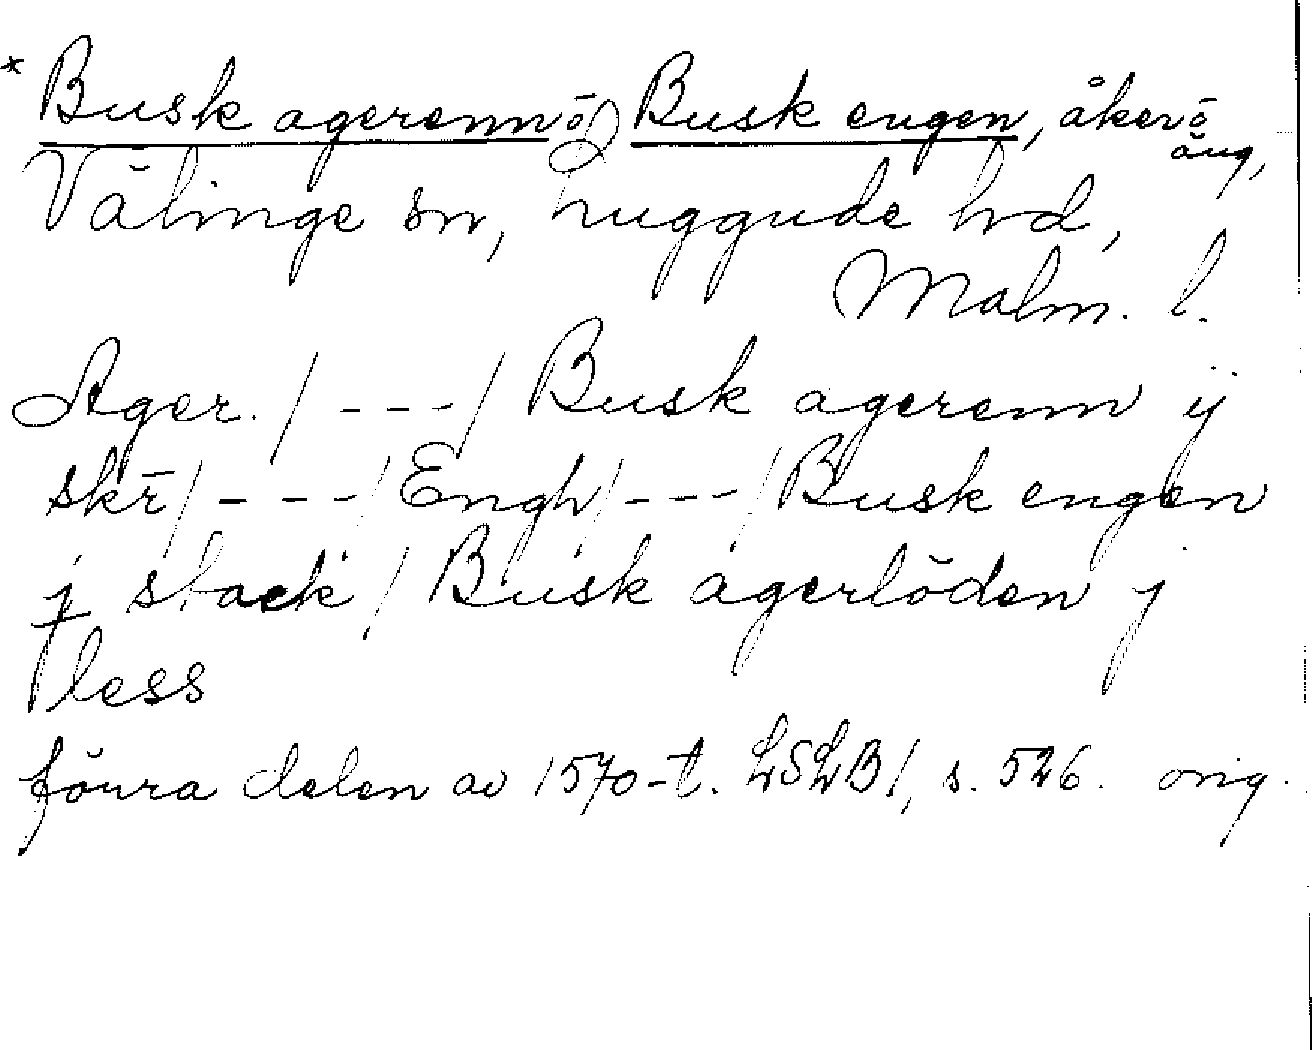 * Busk agerenn o Busk engen, åker o äng,
Välinge sn, Luggude hd,
Malm. l.
Ager. / - - - / Busk agerenn ij
skr̄ / - - - / Engh / - - - / Busk engen
j stack / Busk agerlöden j
less
förra delen av 1570-t. LSLB 1, s. 526. orig.